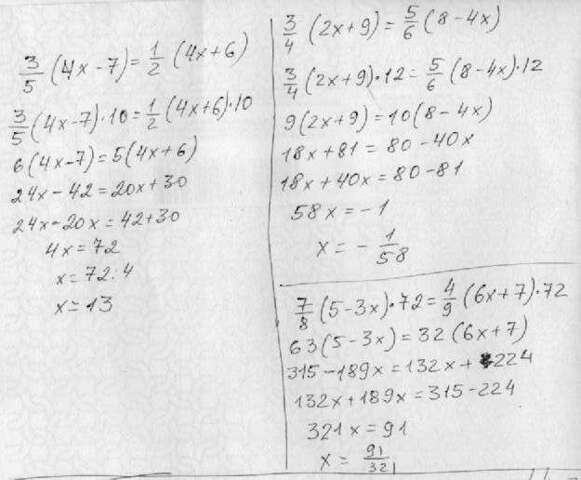 3/5 (4x-7) = 1/2 (4x+6)
3/5 (4x-7)·10 = 1/2 (4x+6)·10
6(4x-7) = 5(4x+6)
24x-42 = 20x+30
24x-20x = 42+30
4x = 72
x = 72:4
x = 13
3/4 (2x+9) = 5/6 (8-4x)
3/4 (2x+9)·12 = 5/6 (8-4x)·12
9(2x+9) = 10(8-4x)
18x+81 = 80-40x
18x+40x = 80-81
58x = -1
x = - 1/58
7/8 (5-3x)·72 = 4/9 (6x+7)·72
63(5-3x) = 32(6x+7)
315-189x = 132x+224
132x+189x = 315-224
321x = 91
x = 91/321